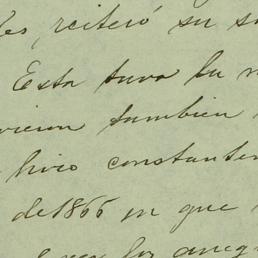 reiteró su
Esta tuvo lu
vieron tambien
hizo constante
de 1866 en que